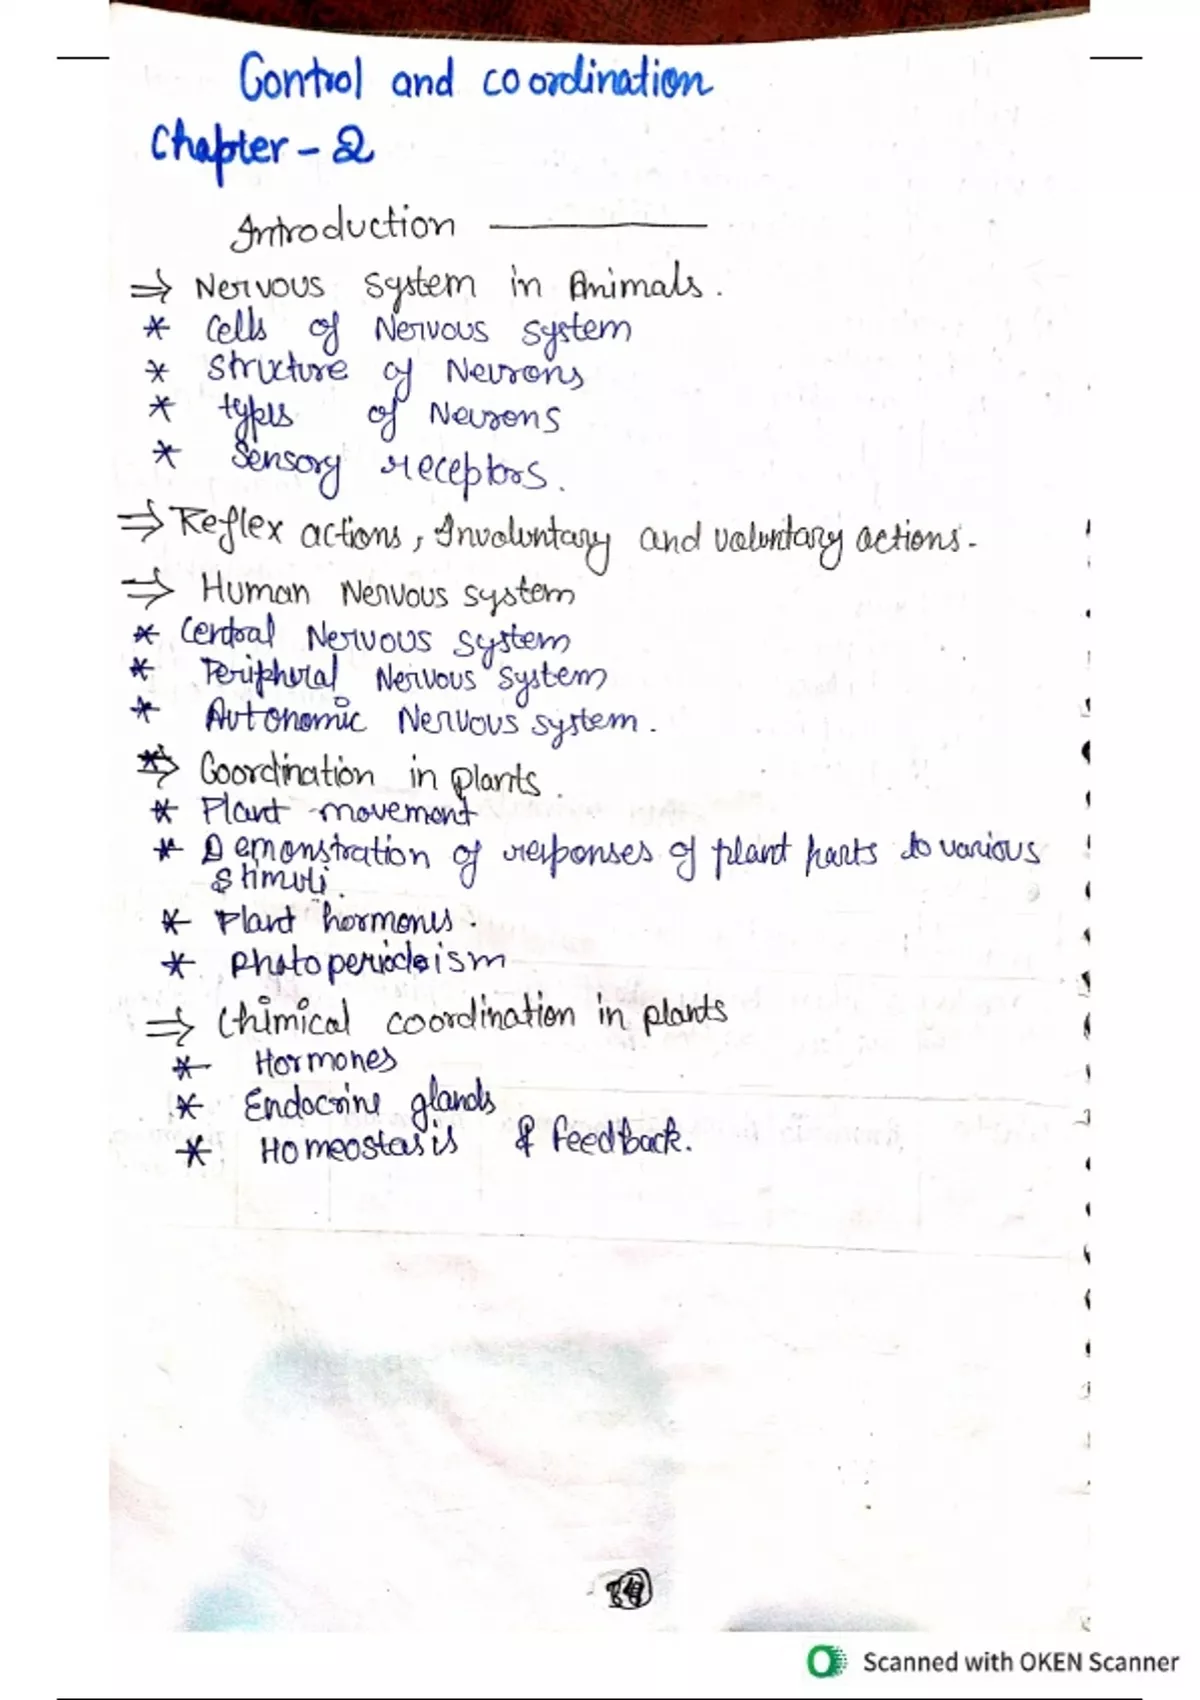 Control and coordination
Chapter - 2
Introduction
⇒ Nervous system in Animals.
* Cells of Nervous system
* Structure of Neurons
* types of Neurons
* Sensory receptors.
⇒ Reflex actions, Involuntary and voluntary actions.
⇒ Human Nervous system
* Central Nervous system
* Peripheral Nervous system
* Autonomic Nervous system.
⇒ Coordination in plants.
* Plant movement
* Demonstration of responses of plant parts to various
stimuli.
* Plant hormones.
* Photoperiodism
⇒ Chimical coordination in plants
* Hormones
* Endocrine glands
* Homeostasis & feedback.
Scanned with OKEN Scanner